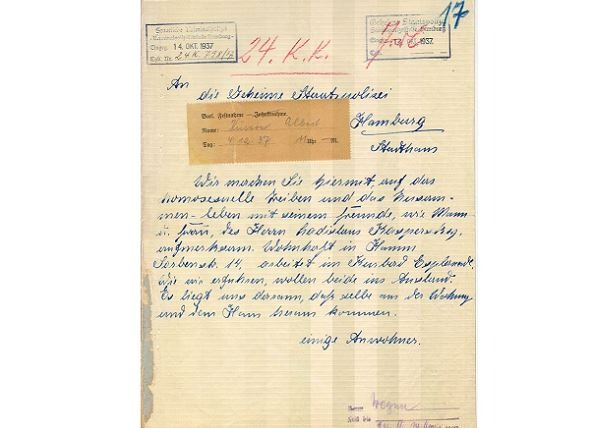 14. OKT. 1937
17
24. K. K.
14. OKT. 1937.
An
die Geheime Staatspolizei
Hamburg
Stadthaus
Vorl. Festnahm
Name: Albert
Tag: 4.12.37 11 Uhr — M.
Wir machen Sie hiermit auf das
homosexuelle Treiben und das Zusam-
men-leben mit seinem Freunde, wie Mann
u. Frau, des Herrn Ladislaus
aufmerksam. Wohnhaft in Hamm
Sorbenstr. 14, arbeitet im Kurbad Esplanade,
Wie wir erfuhren, wollen beide ins Ausland.
Es liegt uns daran, daß selbe aus der Wohnung
und dem Haus heraus kommen.
einige Anwohner.